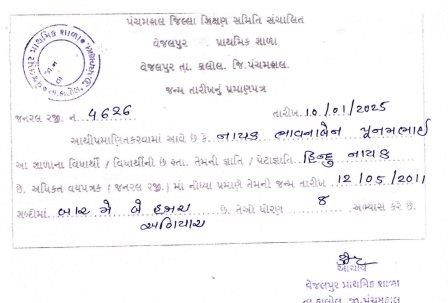 પંચમહાલ જિલ્લા શિક્ષણ સમિતિ સંચાલિત
વેજલપુર પ્રાથમિક શાળા
વેજલપુર તા. કાલોલ. જિ.પંચમહાલ.
જન્મ તારીખનું પ્રમાણપત્ર
જનરલ રજી. નં. 4626 તારીખ. 10/01/2025
આથીપ્રમાણિતકરવામાં આવે છે કે. નાયક ભાવનાબેન પૂનમભાઈ
આ શાળાના વિધાર્થી / વિધાર્થીની છે હતા. તેમની જ્ઞાતિ / પેટાજ્ઞાતિ હિન્દુ નાયક
છે. અધિકત વયપત્રક ( જનરલ રજી.) માં નોંધ્યા પ્રમાણે તેમની જન્મ તારીખ 12/05/2011
શબ્દોમાં બાર મે બે હજાર અગિયાર છે. તેઓ ધોરણ 8 અભ્યાસ કરે છે.
આચાર્ય
વેજલપુર પ્રાથમિક શાળા
તા.કાલોલ, જી.પંચમહાલ